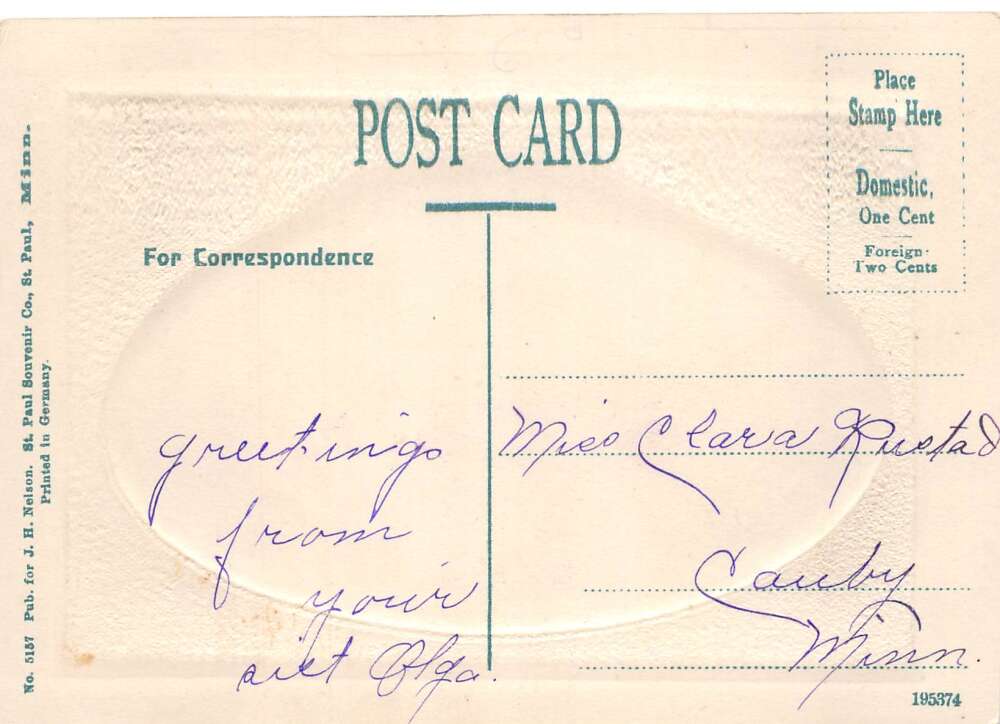 POST CARD
Place
Stamp Here
Domestic,
One Cent
Foreign
Two Cents
For Correspondence
greetings
from
your
sist Olga.
Miss Clara Rustad
Canby
Minn.
No. 5157 Pub. for J. H. Nelson. St. Paul Souvenir Co., St. Paul, Minn.
Printed in Germany.
195374